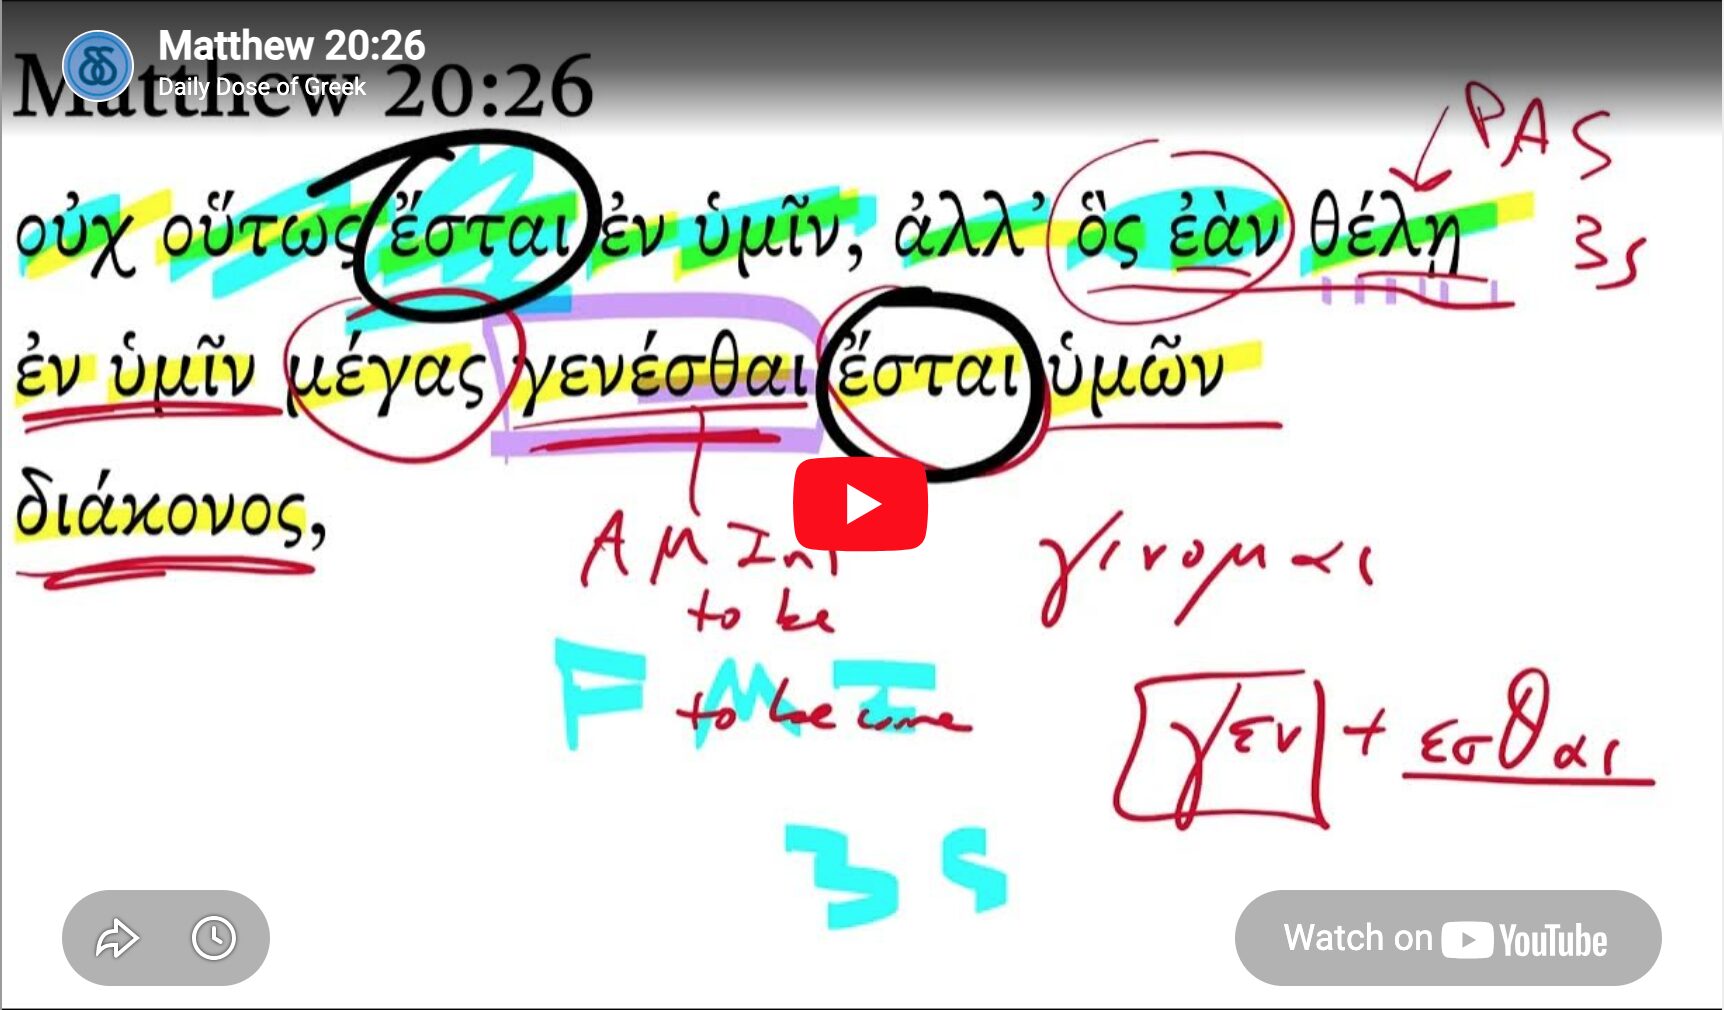 Matthew 20:26
Daily Dose of Greek
Matthew 20:26
PAS
οὐχ οὕτως ἔσται ἐν ὑμῖν, ἀλλ’ ὃς ἐὰν θέλῃ
3s
ἐν ὑμῖν μέγας γενέσθαι ἔσται ὑμῶν
διάκονος,
A M Inf
γινομαι
to be
F M I
to become
γεν + εσθαι
3 S
Watch on YouTube